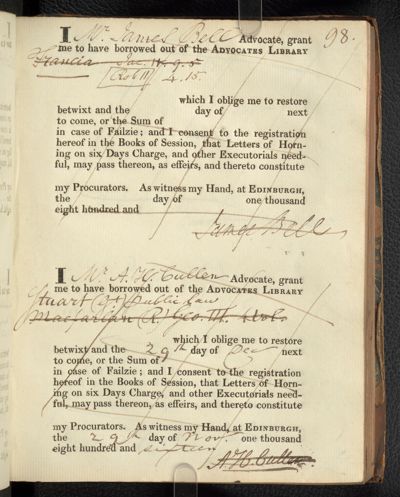 98.
I Mr James Bell Advocate, grant
me to have borrowed out of the ADVOCATES LIBRARY
Francia Jac. 9.5
Rob II 4.15.
which I oblige me to restore
betwixt and the day of next
to come, or the Sum of
in case of Failzie; and I consent to the registration
hereof in the Books of Session, that Letters of Horn-
ing on six Days Charge, and other Executorials need-
ful, may pass thereon, as effeirs, and thereto constitute
my Procurators. As witness my Hand, at EDINBURGH,
the day of one thousand
eight hundred and
James Bell
I Mr A. H. Cullen Advocate, grant
me to have borrowed out of the ADVOCATES LIBRARY
Stuart (Dr) public law
Macfarlan (R) Geo. III.
which I oblige me to restore
betwixt and the 29th day of Dec next
to come, or the Sum of
in case of Failzie; and I consent to the registration
hereof in the Books of Session, that Letters of Horn-
ing on six Days Charge, and other Executorials need-
ful, may pass thereon, as effeirs, and thereto constitute
my Procurators. As witness my Hand, at EDINBURGH,
the 29th day of Novr. one thousand
eight hundred and sixteen
A H Cullen